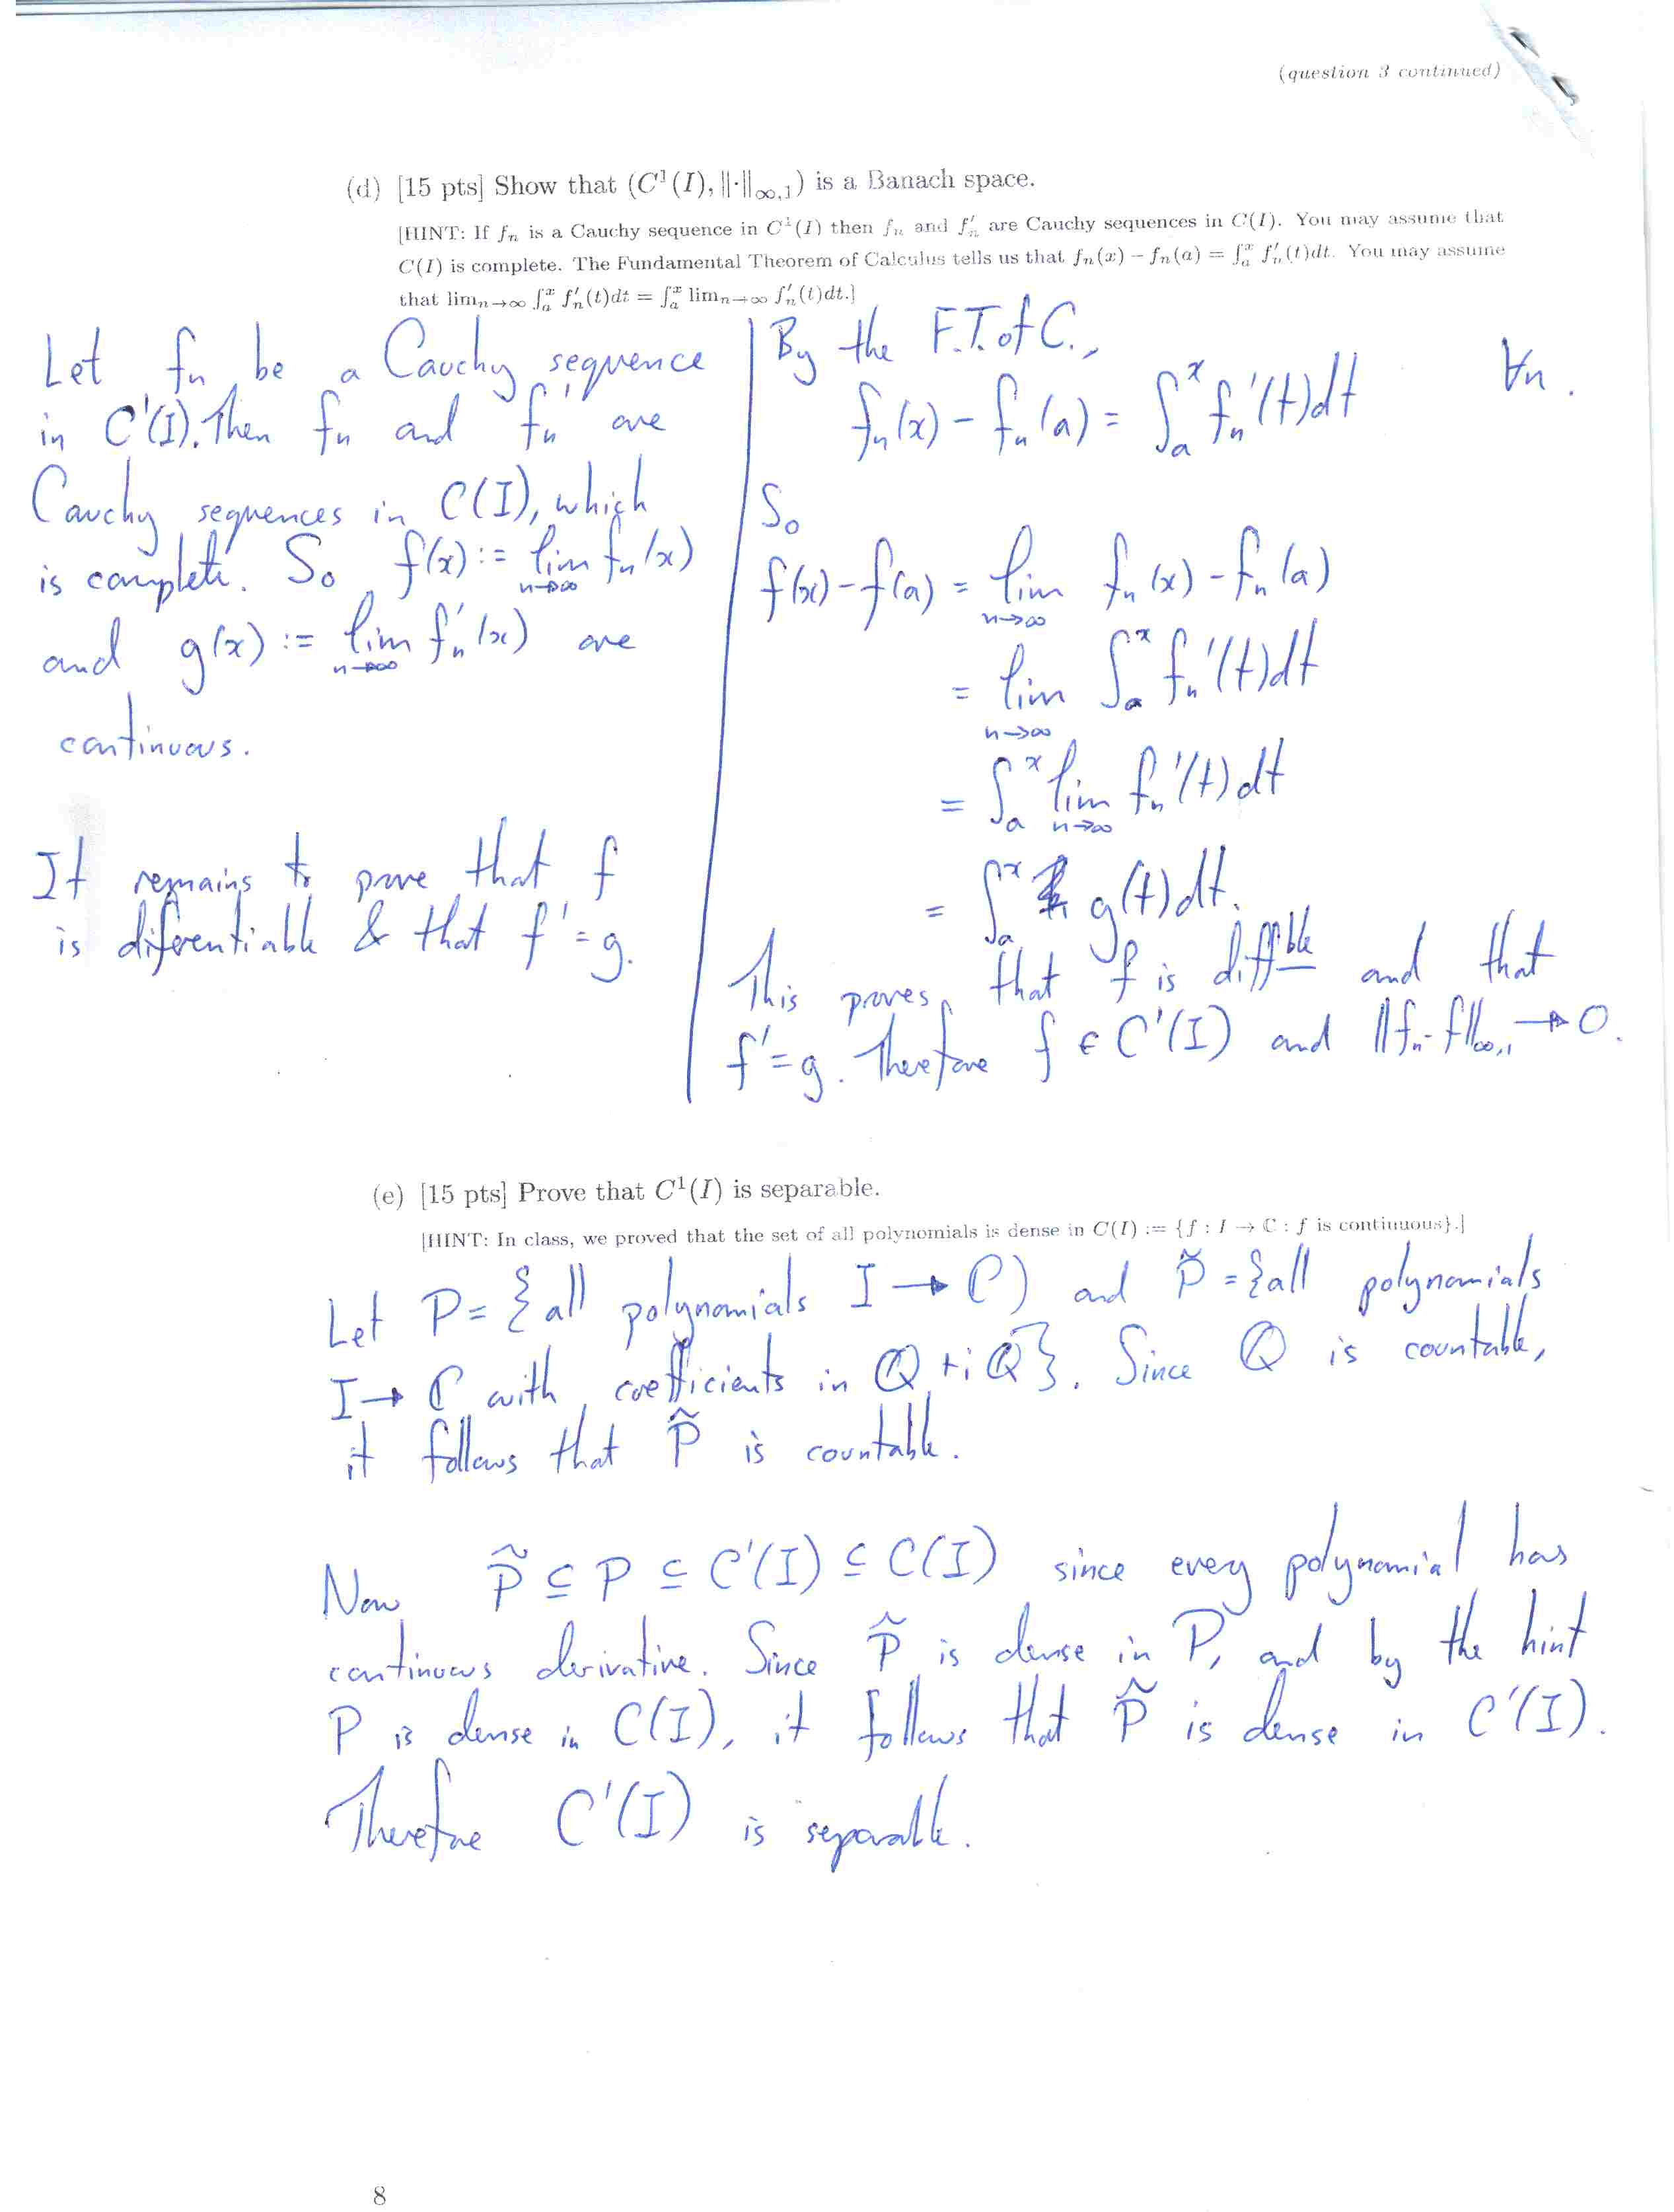 (question 3 continued)
(d) [15 pts] Show that (C¹(I), ‖·‖∞,1) is a Banach space.
[HINT: If fₙ is a Cauchy sequence in C¹(I) then fₙ and fₙ′ are Cauchy sequences in C(I). You may assume that
C(I) is complete. The Fundamental Theorem of Calculus tells us that fₙ(x) − fₙ(a) = ∫ₐˣ fₙ′(t)dt. You may assume
that limₙ→∞ ∫ₐˣ fₙ′(t)dt = ∫ₐˣ limₙ→∞ fₙ′(t)dt.]
Let fₙ be a Cauchy sequence
in C¹(I). Then fₙ and fₙ′ are
Cauchy sequences in C(I), which
is complete. So f(x) := lim n→∞ fₙ(x)
and g(x) := lim n→∞ fₙ′(x) are
continuous.
It remains to prove that f
is diferentiable & that f′ = g.
By the F.T. of C.,
fₙ(x) − fₙ(a) = ∫ₐˣ fₙ′(t)dt ∀n.
So
f(x) − f(a) = lim n→∞ fₙ(x) − fₙ(a)
= lim n→∞ ∫ₐˣ fₙ′(t)dt
= ∫ₐˣ lim n→∞ fₙ′(t)dt
= ∫ₐˣ g(t)dt.
This proves that f is diffble and that
f′ = g. Therefore f ∈ C¹(I) and ‖fₙ − f‖∞,1 → 0.
(e) [15 pts] Prove that C¹(I) is separable.
[HINT: In class, we proved that the set of all polynomials is dense in C(I) := {f : I → ℂ : f is continuous}.]
Let P = {all polynomials I → ℂ) and P̃ = {all polynomials
I → ℂ with coefficients in ℚ + iℚ}. Since ℚ is countable,
it follows that P̃ is countable.
Now P̃ ⊆ P ⊆ C¹(I) ⊆ C(I) since every polynomial has
continuous derivative. Since P̃ is dense in P, and by the hint
P is dense in C(I), it follows that P̃ is dense in C¹(I).
Therefore C¹(I) is separable.
8